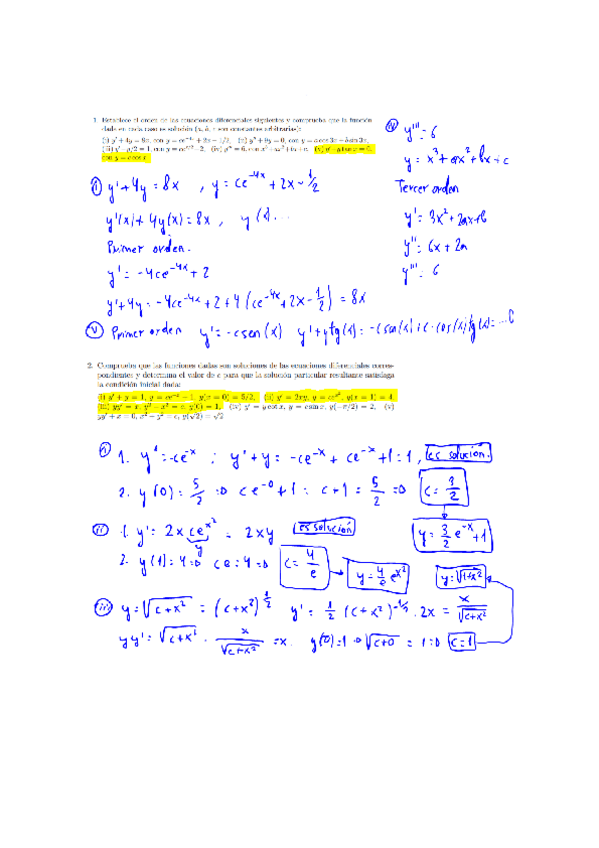 1. Establece el orden de las ecuaciones diferenciales siguientes y comprueba que la función
dada en cada caso es solución (a, b, c son constantes arbitrarias):
(i) y' + 4y = 8x, con y = ce^{-4x} + 2x − 1/2, (ii) y'' + 9y = 0, con y = a cos 3x + b sin 3x,
(iii) y' − y/2 = 1, con y = ce^{x/2} − 2, (iv) y''' = 6, con x³ + ax² + bx + c, (v) y' + y tan x = 0,
con y = c cos x.
(iv) y''' = 6
y = x³ + ax² + bx + c
Tercer orden
y' = 3x² + 2ax + b
y'' = 6x + 2a
y''' = 6
(i) y' + 4y = 8x , y = ce^{-4x} + 2x − 1/2
y'(x) + 4y(x) = 8x , y(x) ...
Primer orden.
y' = −4ce^{-4x} + 2
y' + 4y = −4ce^{-4x} + 2 + 4(ce^{-4x} + 2x − 1/2) = 8x
(v) Primer orden y' = −c sen(x) y' + y tg(x) = −c sen(x) + c · cos(x) tg(x) = ... 0
2. Comprueba que las funciones dadas son soluciones de las ecuaciones diferenciales corres-
pondientes y determina el valor de c para que la solución particular resultante satisfaga
la condición inicial dada:
(i) y' + y = 1, y = ce^{-x} + 1, y(x = 0) = 5/2, (ii) y' = 2xy, y = ce^{x²}, y(x = 1) = 4,
(iii) yy' = x, y² − x² = c, y(0) = 1, (iv) y' = y cot x, y = c sin x, y(−π/2) = 2, (v)
yy' + x = 0, x² + y² = c, y(√2) = √2
(i) 1. y' = −ce^{-x} : y' + y = −ce^{-x} + ce^{-x} + 1 = 1, es solución.
2. y(0) = 5/2 ⇒ ce^{-0} + 1 : c + 1 = 5/2 ⇒ c = 3/2
y = 3/2 e^{-x} + 1
(ii) 1. y' = 2x ce^{x²} = 2xy es solución
y
2. y(1) = 4 ⇒ ce = 4 ⇒ c = 4/e → y = 4/e e^{x²}
y = √(1+x²)
(iii) y = √(c+x²) = (c+x²)^{1/2} y' = 1/2 (c+x²)^{-1/2} · 2x = x/√(c+x²)
yy' = √(c+x²) · x/√(c+x²) = x. y(0) = 1 ⇒ √(c+0) = 1 ⇒ c = 1